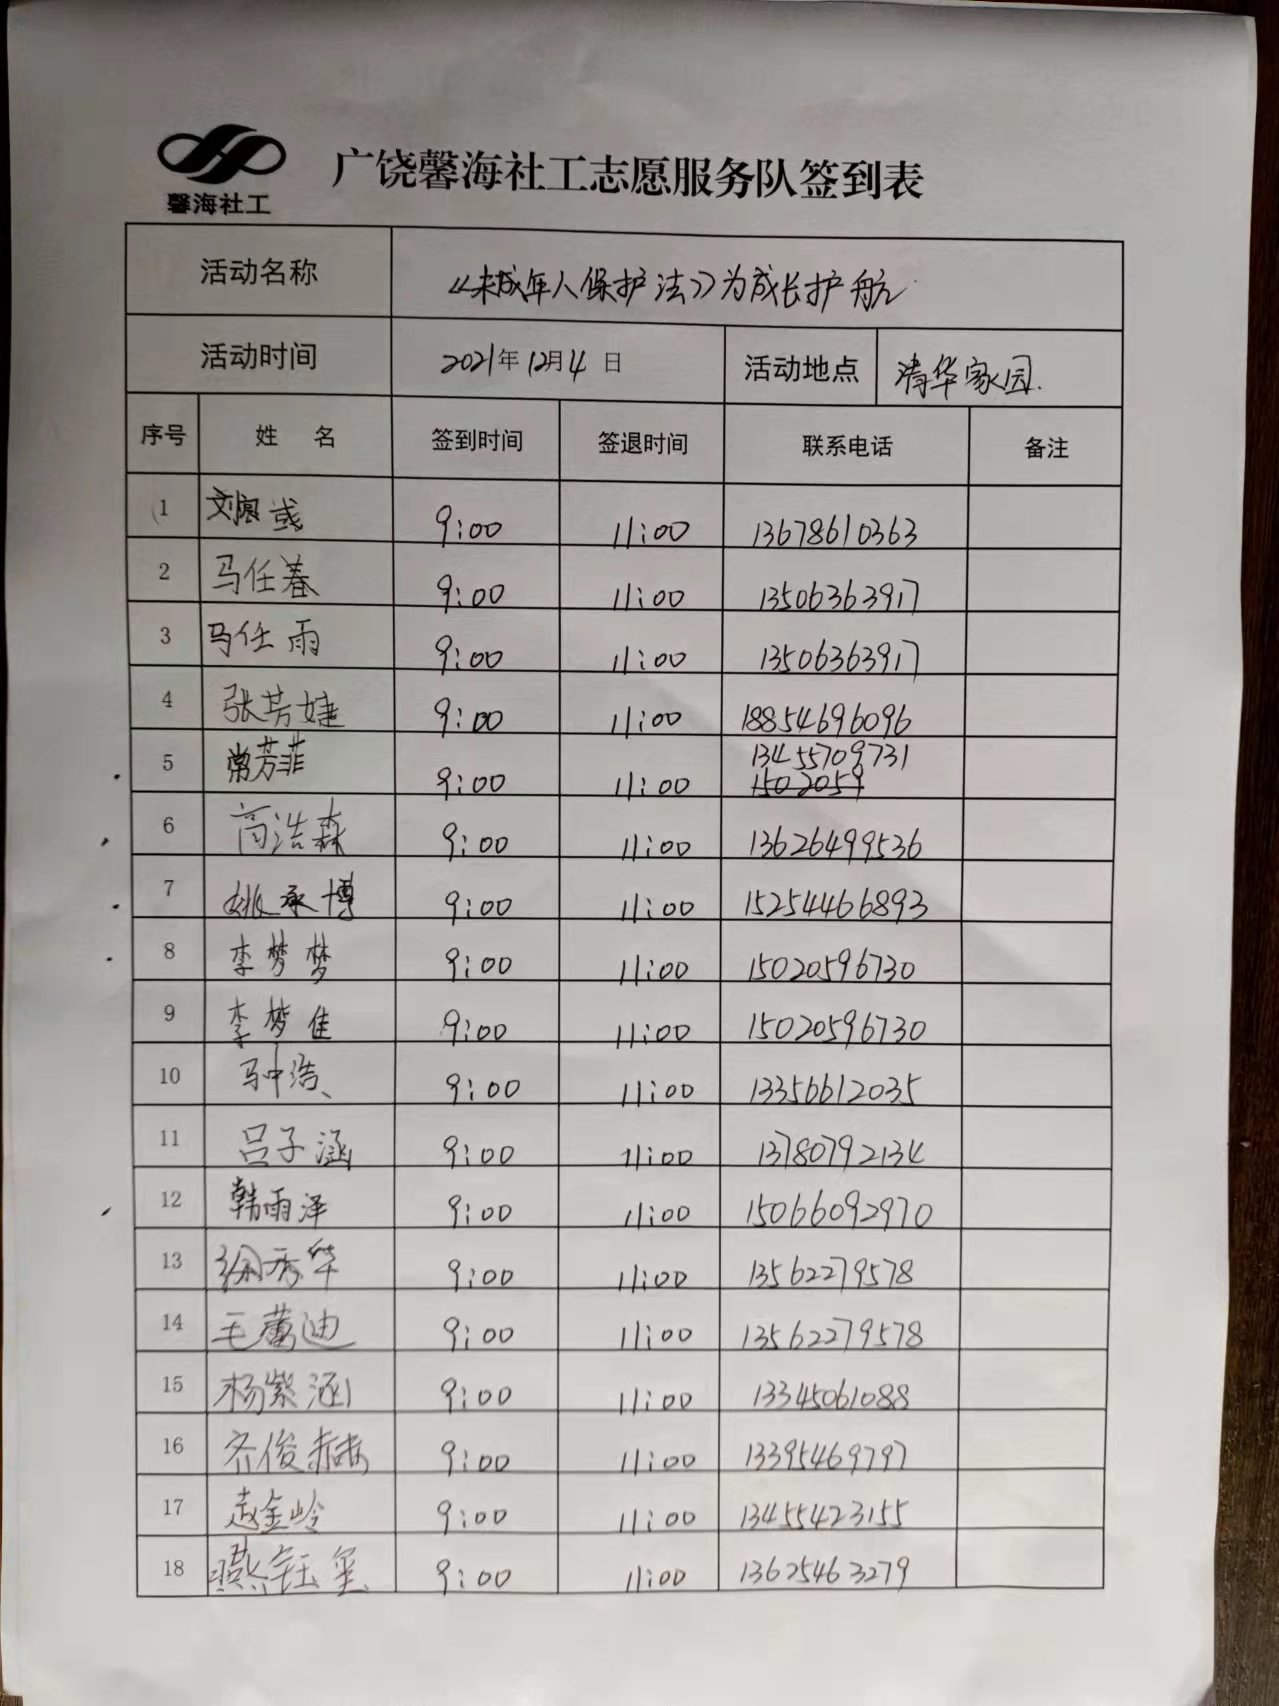 馨海社工
广饶馨海社工志愿服务队签到表
活动名称 《未成年人保护法》为成长护航
活动时间 2021年12月4日 活动地点 清华家园.
序号 姓 名 签到时间 签退时间 联系电话 备注
1 9:00 11:00 13678610363
2 马任春 9:00 11:00 13506363917
3 马任雨 9:00 11:00 13506363917
4 张芳婕 9:00 11:00 18854696096
5 常芳菲 9:00 11:00 13455709731
1502059
6 高浩森 9:00 11:00 13626499536
7 姚承博 9:00 11:00 15254466893
8 李梦梦 9:00 11:00 15020596730
9 李梦佳 9:00 11:00 15020596730
10 马中浩 9:00 11:00 13356612035
11 吕子涵 9:00 11:00 13780792134
12 韩雨泽 9:00 11:00 15066092970
13 徐秀华 9:00 11:00 13562279578
14 毛蕾迪 9:00 11:00 13562279578
15 杨紫涵 9:00 11:00 13345061088
16 齐俊赫 9:00 11:00 13395469797
17 赵金岭 9:00 11:00 13455423155
18 燕钰玺 9:00 11:00 13625463279